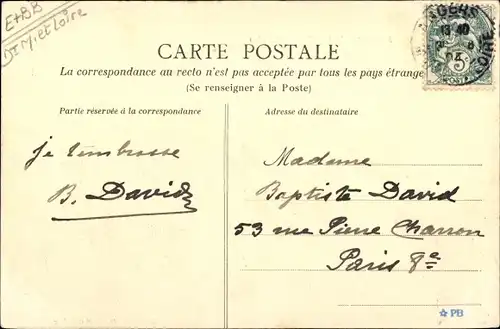 E+BB
Dt M. et Loire
ANGERS
19 40
LOIRE
5c
POSTES
CARTE POSTALE
La correspondance au recto n'est pas acceptée par tous les pays étrange
(Se renseigner à la Poste)
Partie réservée à la correspondance
Adresse du destinataire
je t'embrasse
B. David
Madame
Baptiste David
53 rue Pierre Charron
Paris 8e
☆ PB